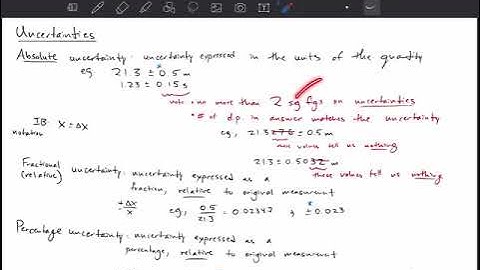 Uncertainties
Absolute uncertainty: uncertainty expressed in the units of the quantity
eg 21.3 ± 0.5 m
1.23 ± 0.15 s
note: • no more than 2 sg fgs on uncertainties
• # of d.p. in answer matches the uncertainty
IB notation x ± Δx
eg, 21.3276 ± 0.5 m
these values tell us nothing
21.3 ± 0.5032 m
these values tell us nothing
Fractional (relative) uncertainty: uncertainty expressed as a
fraction, relative to original measurement
±Δx/x eg, 0.5/21.3 = 0.02347 ; ±0.023
Percentage uncertainty: uncertainty expressed as a
percentage, relative to original measurement